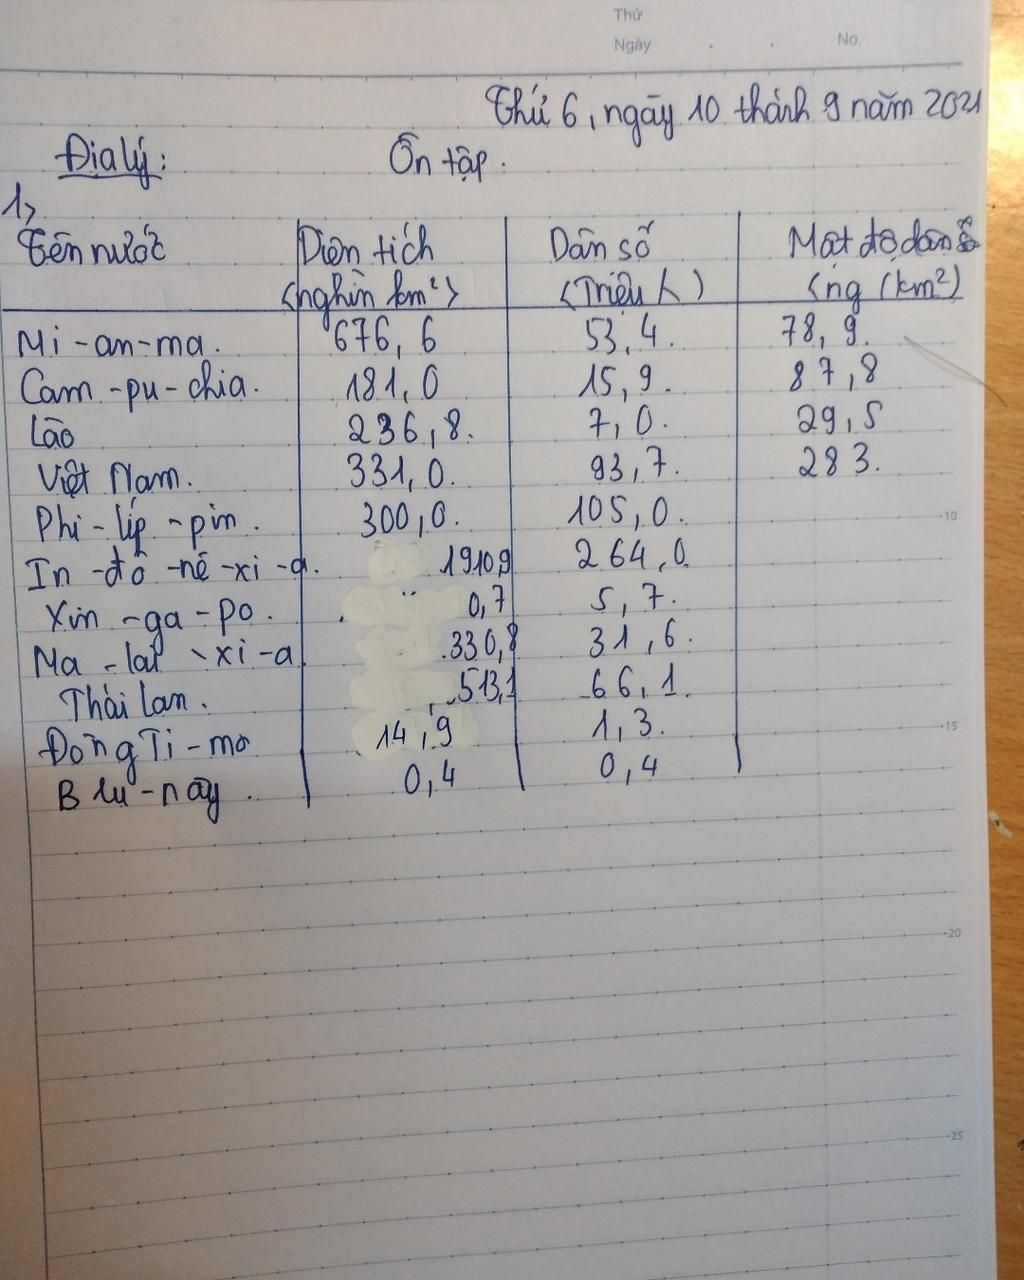 Thứ
Ngày . . No.
Thứ 6, ngày 10 tháng 9 năm 2021
Địa lý: Ôn tập.
1>
Tên nước Diện tích Dân số Mật độ dân số
(nghìn km²) (Triệu ) (ng /km²)
Mi-an-ma. 676,6 53,4. 78,9.
Cam-pu-chia. 181,0 15,9. 87,8
Lào 236,8. 7,0. 29,5
Việt Nam. 331,0. 93,7. 283.
Phi-lip-pin. 300,0. 105,0.
10
In-đô-nê-xi-a. 1910,9 264,0.
Xin-ga-po. 0,7 5,7.
Ma-lai-xi-a 330,8 31,6.
Thái Lan. 513,1 66,1.
Đông Ti-mo 14,9 1,3.
15
Bru-nây. 0,4 0,4
20
25